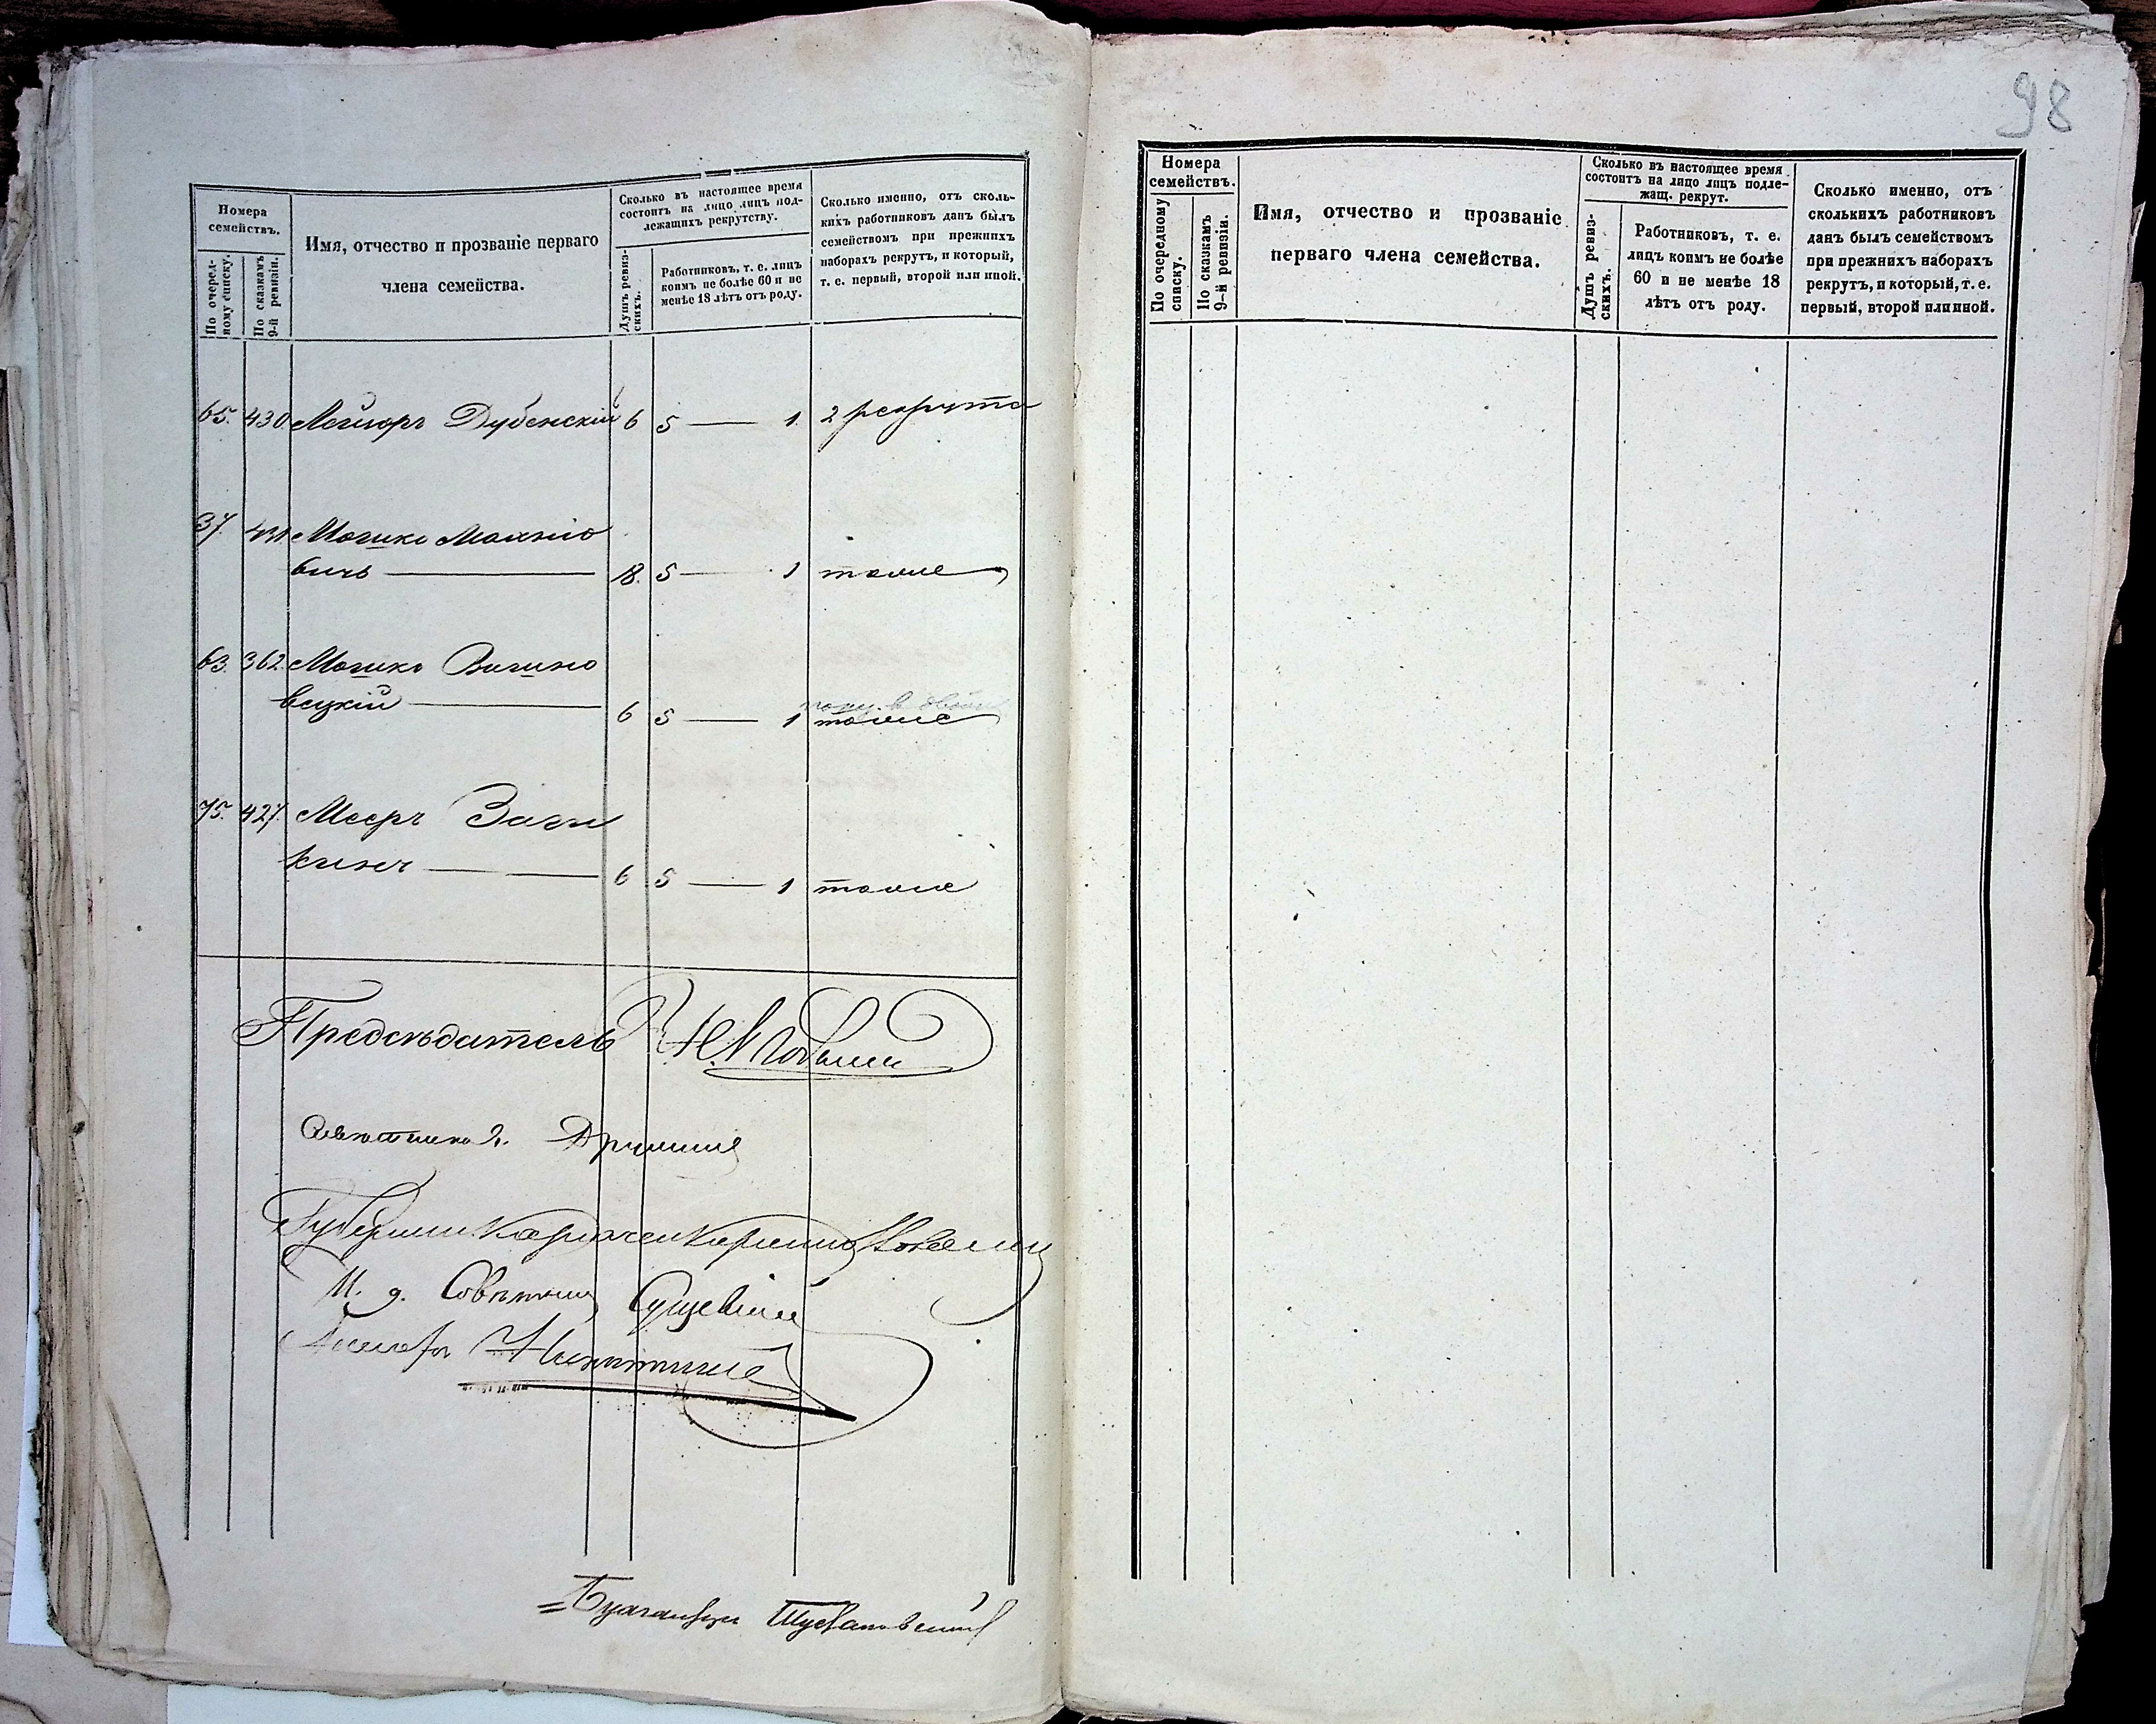 Номера
семействъ.
По очеред-
ному списку.
По сказкамъ
9-й ревизіи.
Имя, отчество и прозваніе перваго
члена семейства.
Сколько въ настоящее время
состоитъ на лицо лицъ под-
лежащихъ рекрутству.
Душъ ревиз-
скихъ.
Работниковъ, т. е. лицъ
коимъ не болѣе 60 и не
менѣе 18 лѣтъ отъ роду.
Сколько именно, отъ сколь-
кихъ работниковъ данъ былъ
семействомъ при прежнихъ
наборахъ рекрутъ, и который,
т. е. первый, второй или иной.
65. 430 Дубенскій 6 5 — 1. 2 рекрута
37. Мошко Махно
вичъ — 18. 5 — 1 тоже
63. 362 Мошко Вишно
вецкій — 6 5 — 1 тоже
75. 427. Мееръ
— 6 5 — 1 тоже
Предсѣдатель
И. д. Совѣтник
98
Номера
семействъ.
По очередному
списку.
По сказкамъ
9-й ревизіи.
Имя, отчество и прозваніе
перваго члена семейства.
Сколько въ настоящее время
состоитъ на лицо лицъ подле-
жащ. рекрут.
Душъ ревиз-
скихъ.
Работниковъ, т. е.
лицъ коимъ не болѣе
60 и не менѣе 18
лѣтъ отъ роду.
Сколько именно, отъ
сколькихъ работниковъ
данъ былъ семействомъ
при прежнихъ наборахъ
рекрутъ, и который, т. е.
первый, второй или иной.